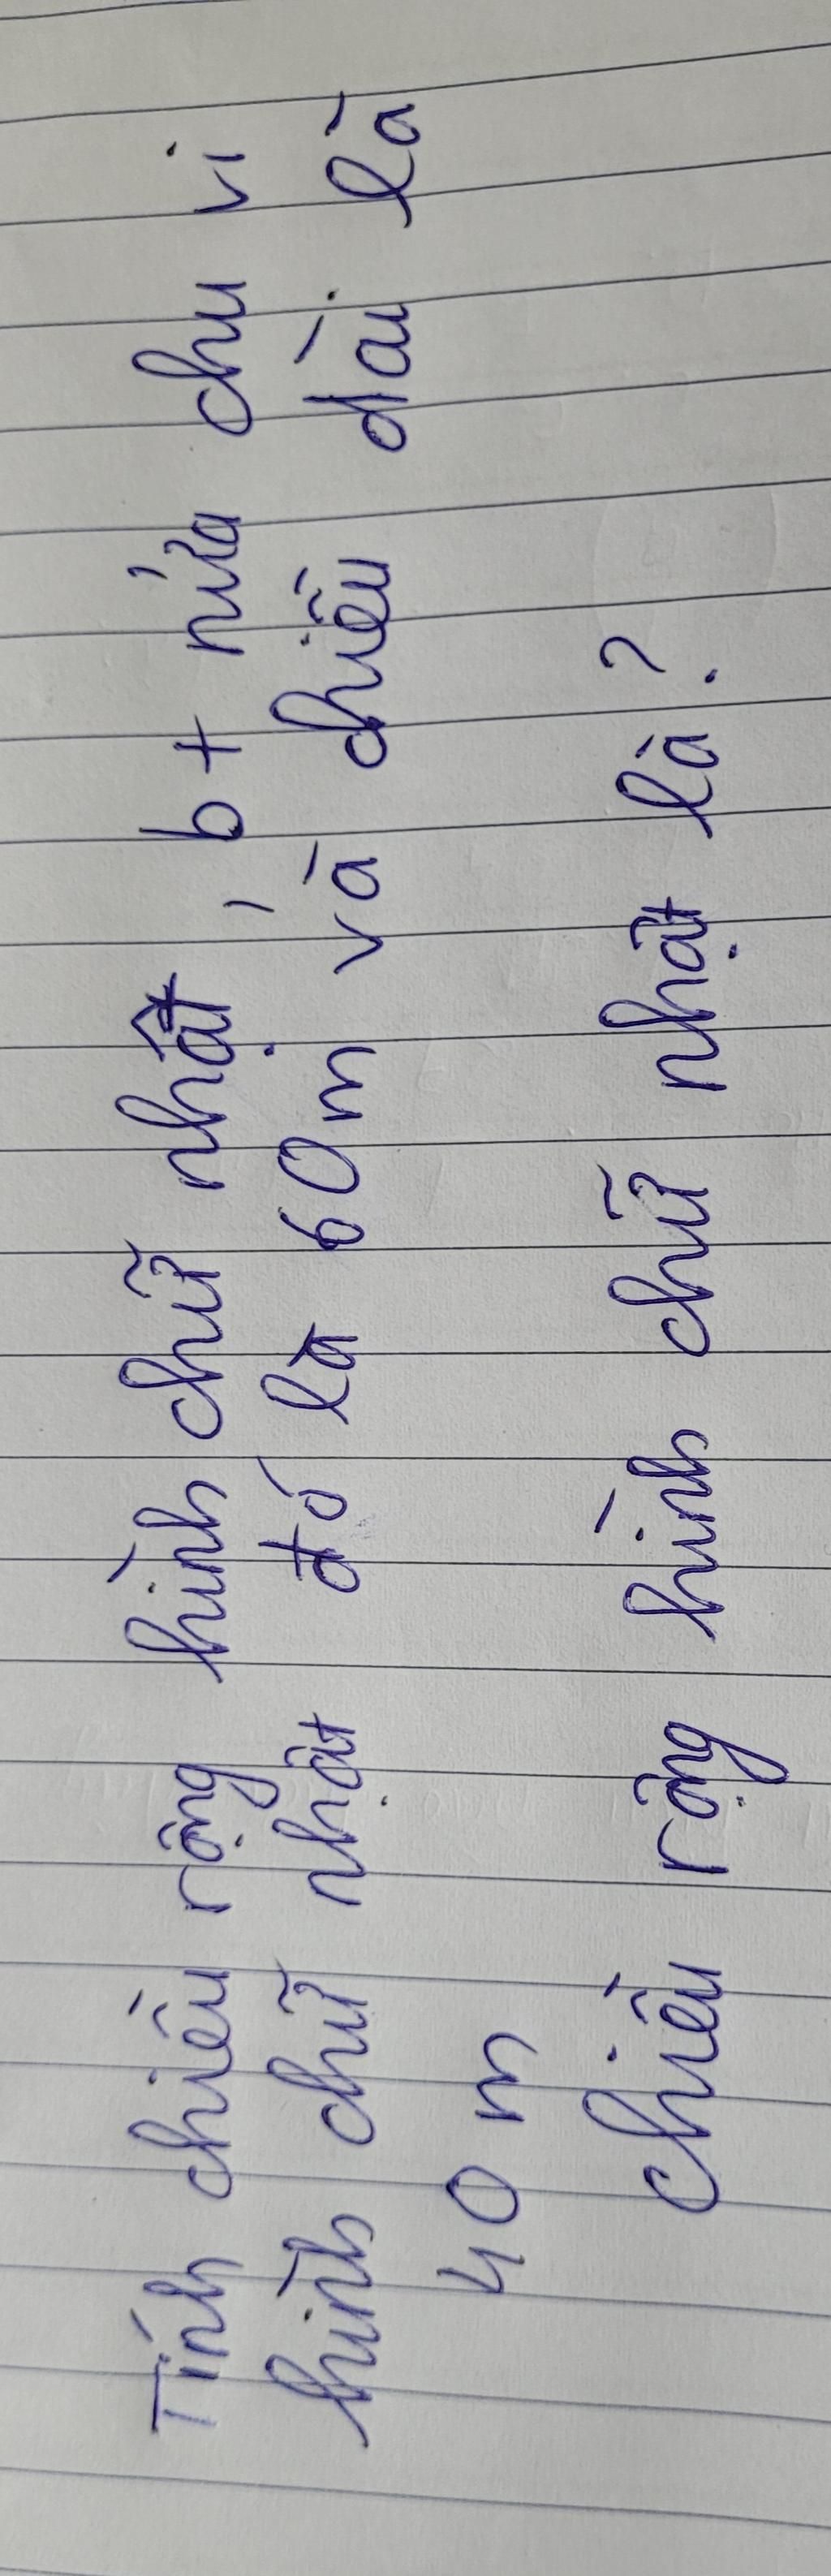 Tính chiều rộng hình chữ nhật, bt nửa chu vi
hình chữ nhật đó là 60m và chiều dài là
40 m
chiều rộng hình chữ nhật là ?